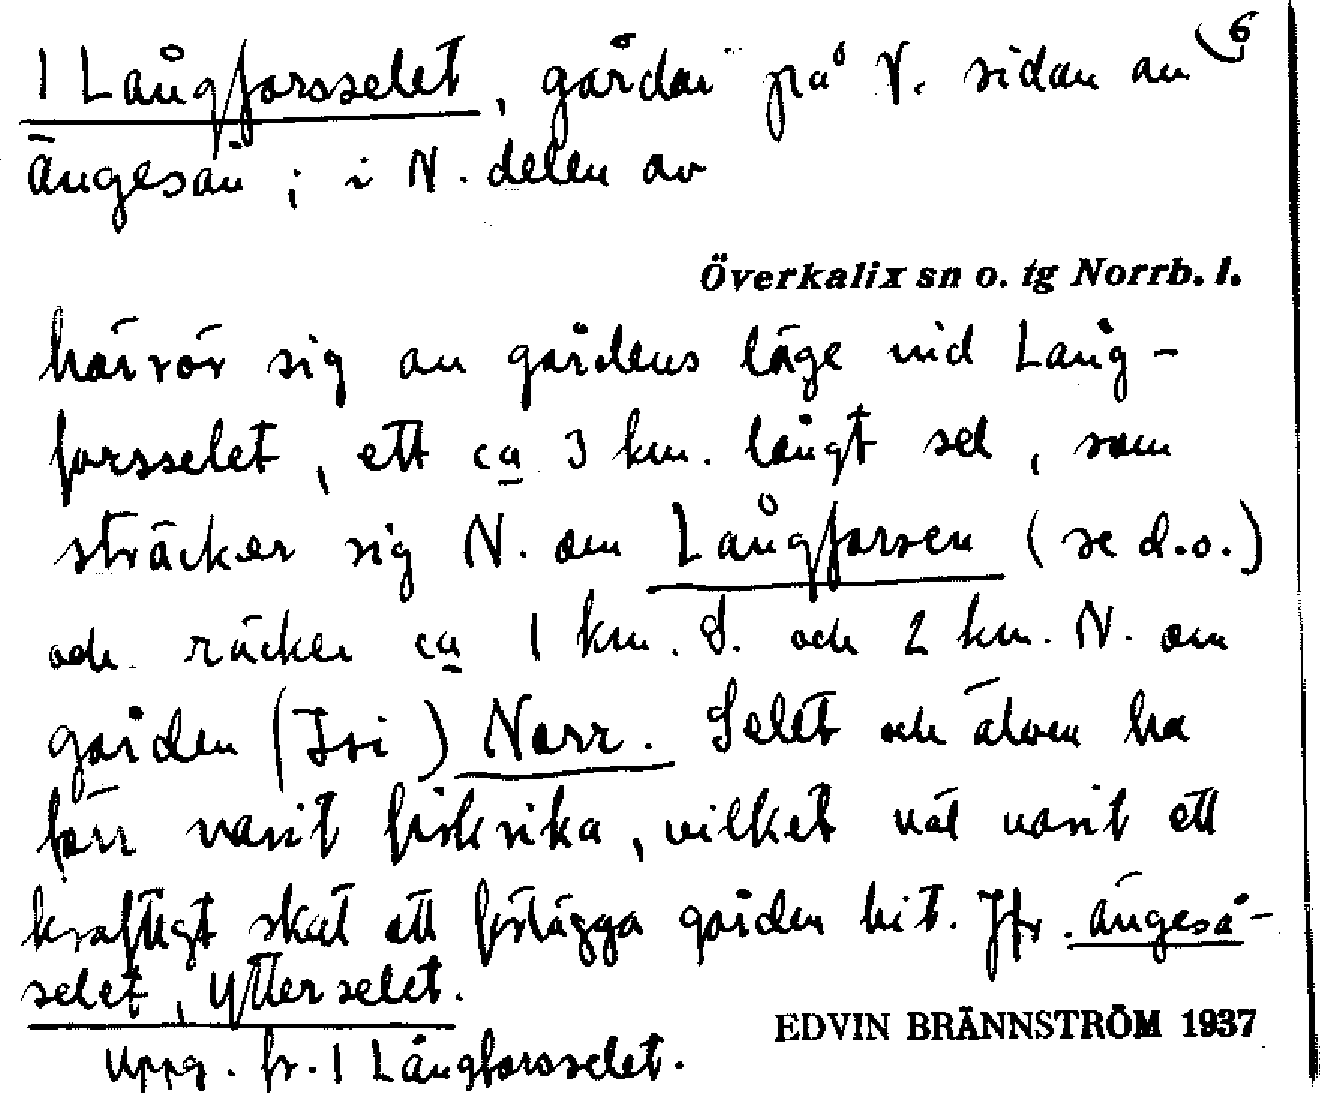 6
1 Långforsselet, gården på V. sidan av
Ängesån; i N. delen av
Överkalix sn o. tg Norrb. l.
härrör sig av gårdens läge vid Lång-
forsselet, ett ca 3 km. långt sel, som
sträcker sig N. om Långforsen (se d.o.)
och räcker ca 1 km. S. och 2 km. N. om
gården (Ivi) Norr. Selet och älven ha
förr varit fiskrika, vilket väl varit ett
kraftigt skäl att förlägga gården hit. Jfr. Ängeså-
selet, Ytterselet.
EDVIN BRÄNNSTRÖM 1937
Uppg. fr. 1 Långforsselet.